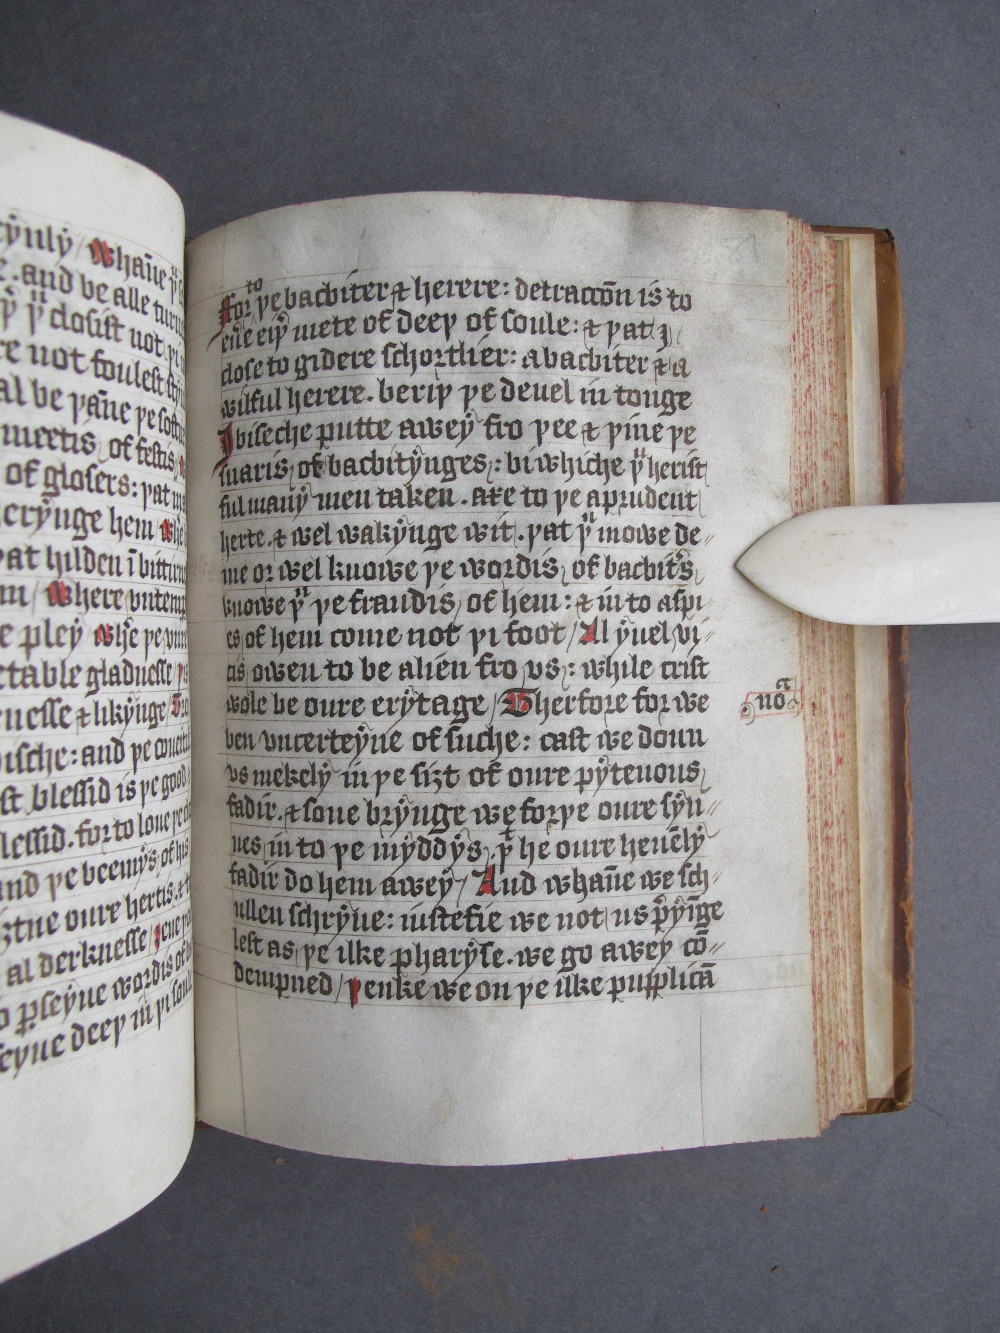 tẏnly / Whan̄e þu
e. and be alle turn
closist not þi
re not foulest
al be þan̄e þe soft
meetis, of festis,
of glosers: þat
cerẏnge hem Whe
þat hilden ī bittir
m / Where vntemp
e pleẏ Whe þe vnt
ctable gladnesse
nesse & likẏnge
ische: and þe
st blessid is þe good
lessid. for to loue
and þe beemẏs, of his
ȝtne oure hertis. &
al derknesse
p̱seẏne wordis of
seyne deeþ in þi soul
For to þe bacbiter & herere: detracc̄on is to
eūe eiþ mete of deeþ of soule: & þat I
close to gidere schortlier: a bacbiter & a
wilful herere. beriþ þe deuel in tonge
I biseche putte aweẏ fro þee & þine þe
snaris, of bacbitẏnges,: bi whiche þu herist
ful manẏ men taken. are to þe a prudent
herte. & wel wakẏnge wit. þat þu mowe de〃
me or wel knowe þe wordis, of bacbits,
knowe þu þe fraudis, of hem: & in to aspi〃
es, of hem come not þi foot / Al ẏuel vi〃
cis owen to be alien fro vs: while crist
wole be oure erẏtage / Therfore for we
ben vncerteẏne of suche: cast we doun
vs mekelẏ in þe siȝt of oure pẏteuous,
fadir. & sone brẏnge we forþe oure sẏn〃
nes, in to þe mẏddẏs, þt he oure heuēlẏ
fadir do hem aweẏ / And whan̄e we sch〃
ullen schrẏue: iustefie we not us p̱ẏīge
lest as þe ilke pharẏse. we go aweẏ cō〃
dempned / þenke we on þe ilke pupplicā
nōa